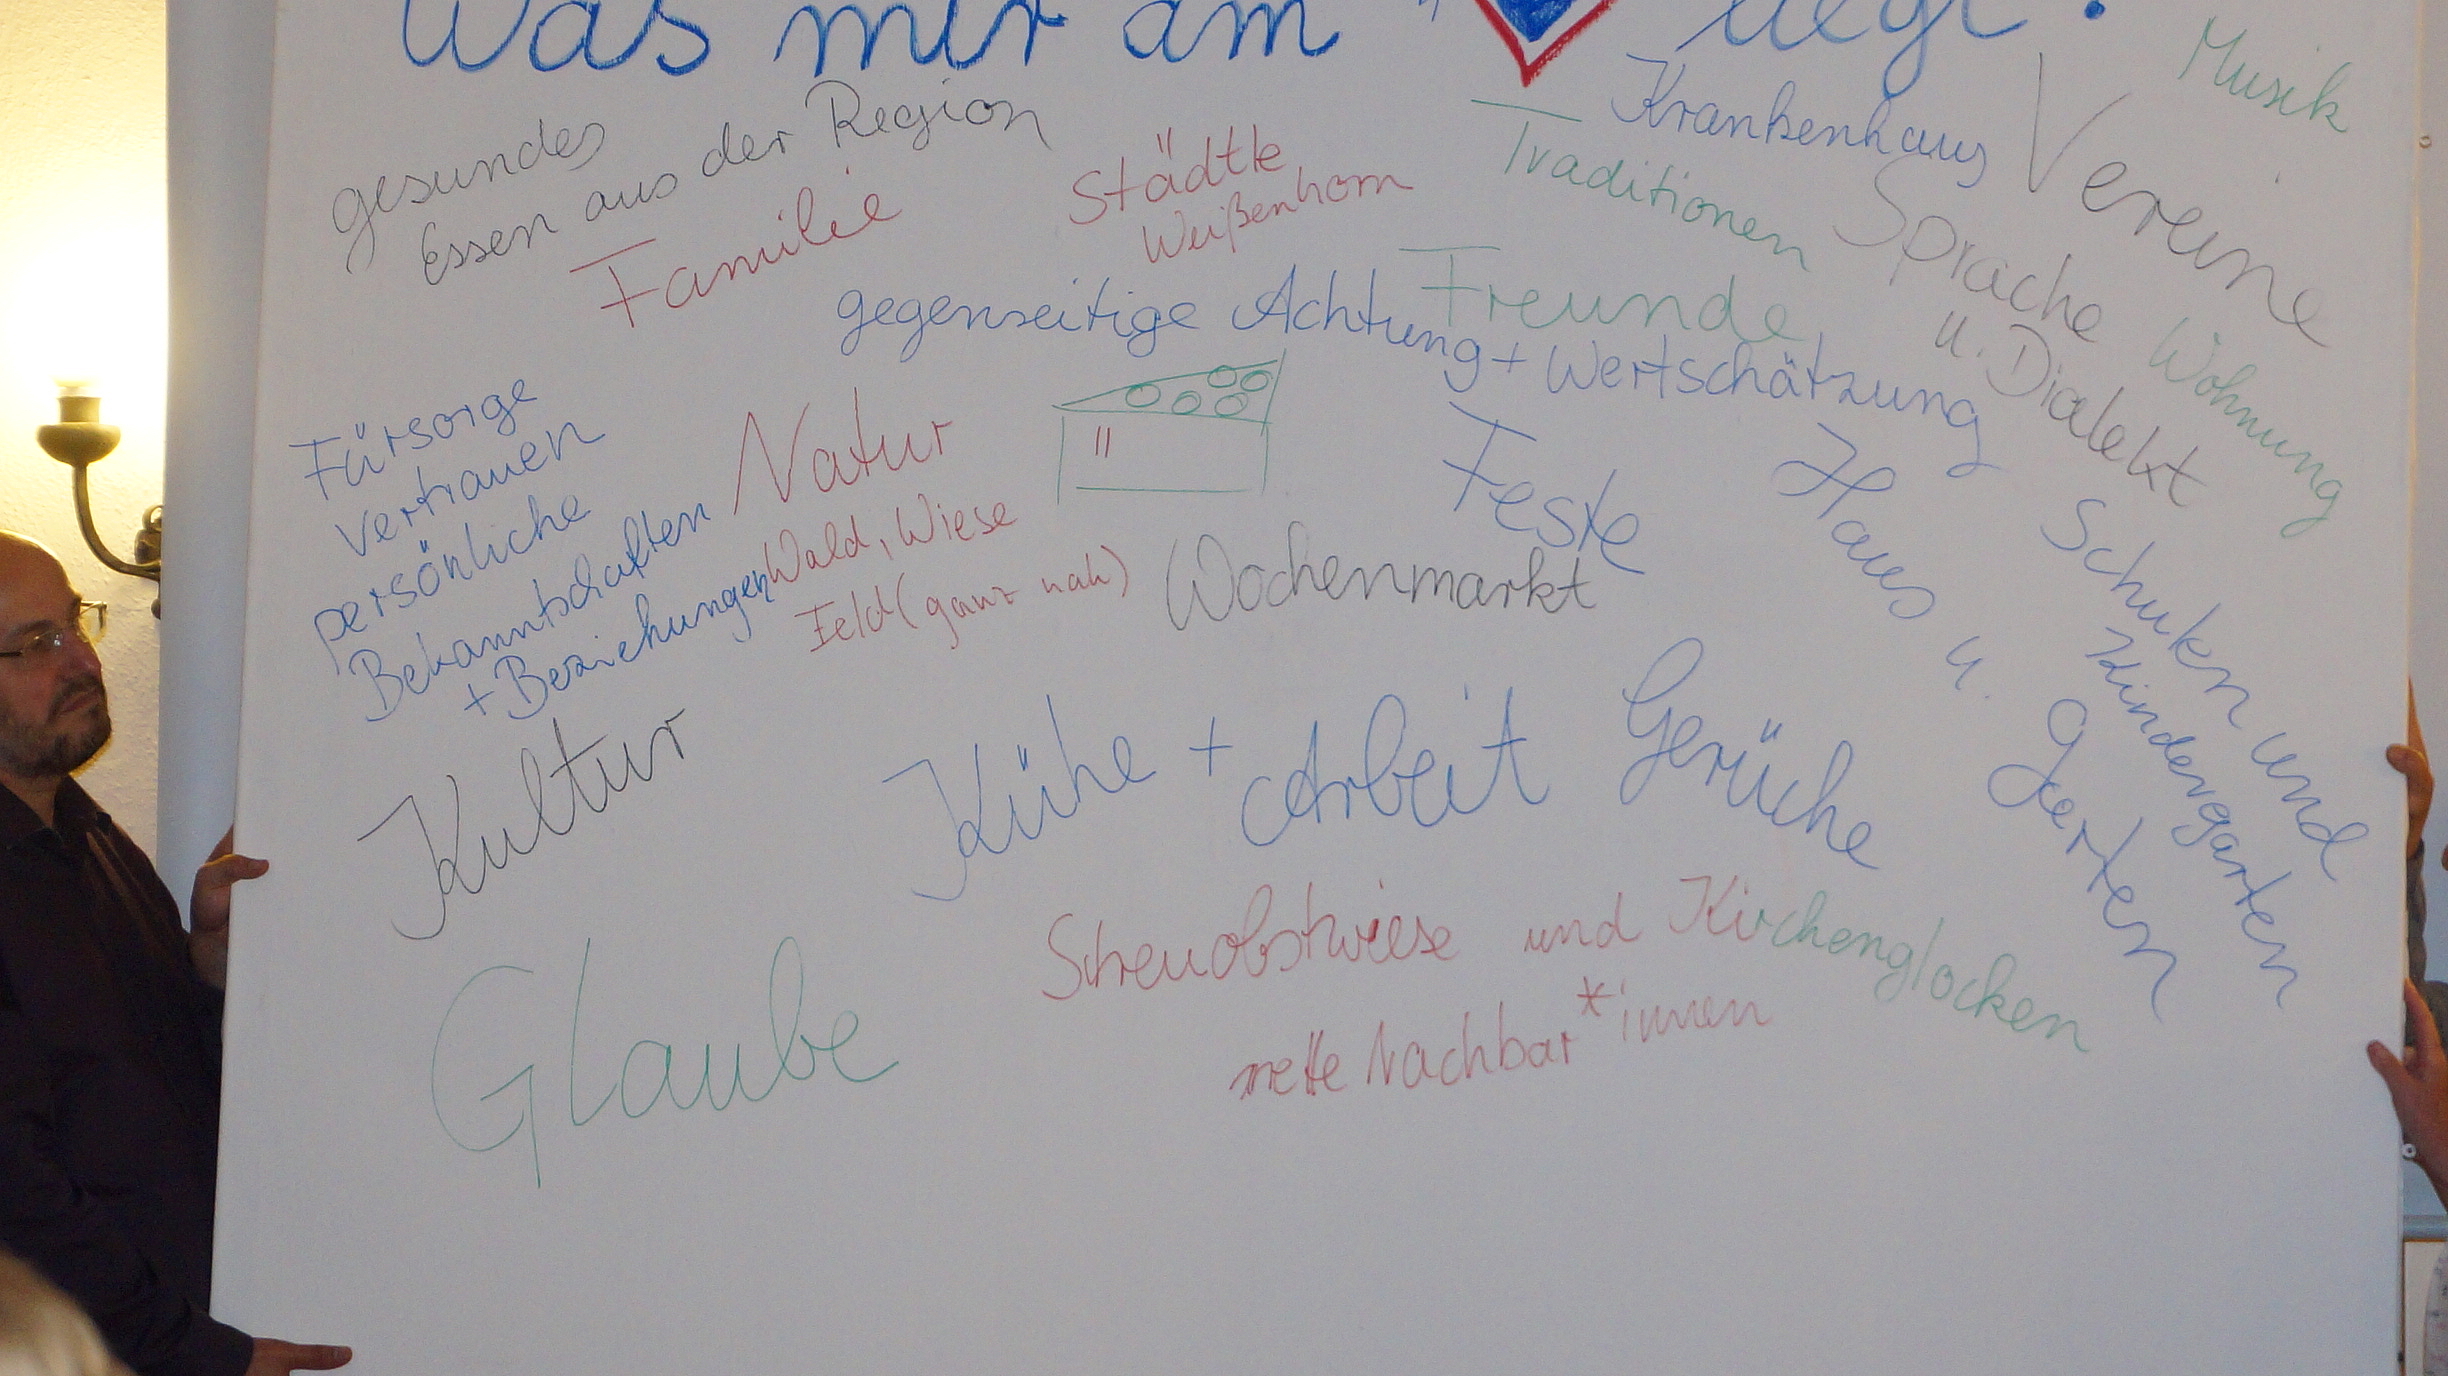 Was mir am liegt:
Musik
Krankenhaus
Vereine
gesundes
Essen aus der Region
Städtle
Weißenhorn
Traditionen
Sprache
u. Dialekt
Familie
gegenseitige Achtung + Wertschätzung
Freunde
Wohnung
Fürsorge
Vertrauen
persönliche
Bekanntschaften
+ Beziehungen
Natur
Wald, Wiese
Feld (ganz nah)
Feste
Haus u. Garten
Schulen und
Kindergarten
Wochenmarkt
Kultur
Kühe + Arbeit
Gerüche
Streuobstwiese und Kirchenglocken
Glaube
nette Nachbar*innen